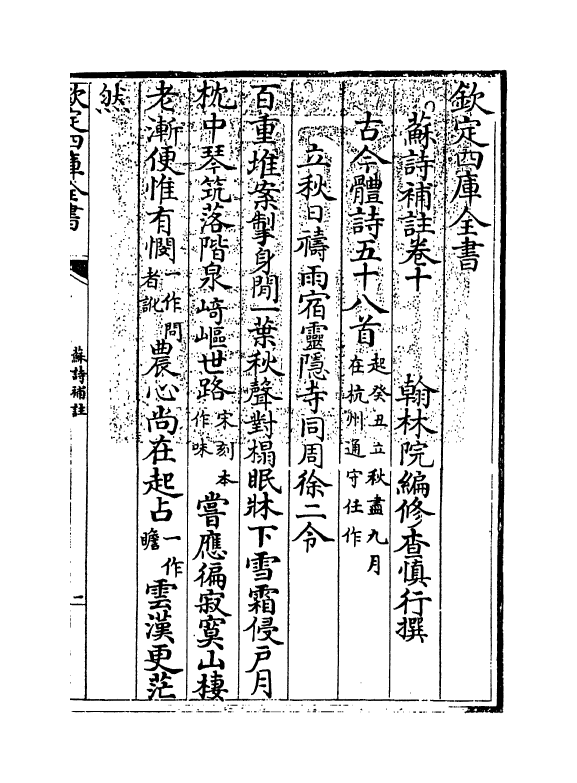 欽定四庫全書
蘇詩補註卷十　　翰林院編修查慎行撰
古今體詩五十八首起癸丑立秋盡九月在杭州通守任作
立秋日禱雨宿靈隱寺同周徐二令
百重堆案掣身閒一葉秋聲對榻眠牀下雪霜侵戶月
枕中琴筑落階泉崎嶇世路宋刻本作味嘗應徧寂寞山棲
老漸便惟有憫一作問者訛農心尚在起占一作瞻雲漢更茫
然
欽定四庫全書
蘇詩補註